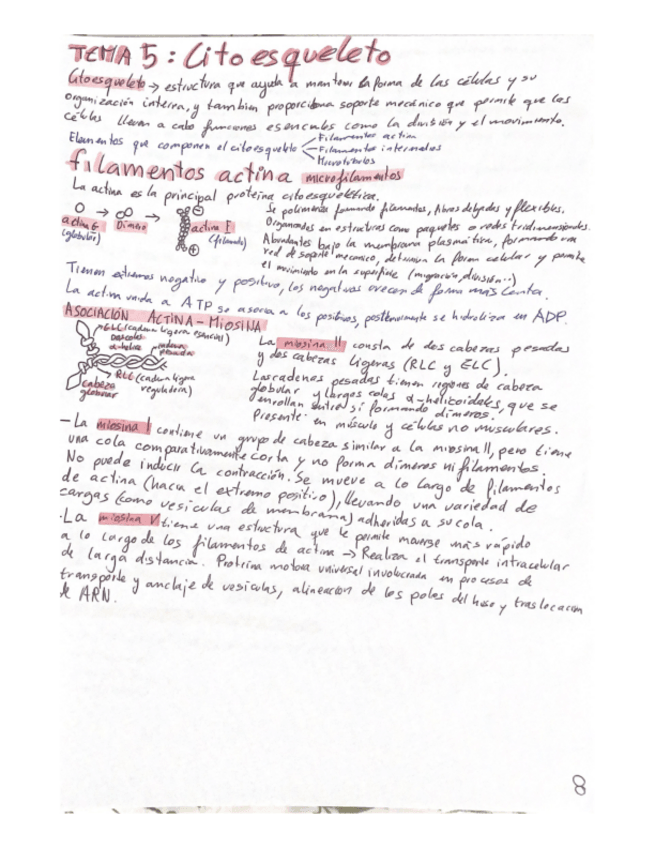 TEMA 5: Citoesqueleto
Citoesqueleto → estructura que ayuda a mantener la forma de las células y su
organización interna, y tambien proporciona soporte mecánico que permite que las
células lleven a cabo funciones esenciales como la división y el movimiento.
Elementos que componen el citoesqueleto
Filamentos actina
Filamentos intermedios
Microtúbulos
filamentos actina microfilamentos
La actina es la principal proteína citoesquelética.
actina G (globular)
Dímero
actina F (filamento)
Se polimeriza formando filamentos, fibras delgadas y flexibles.
Organizados en estructuras como paquetes o redes tridimensionales.
Abundantes bajo la membrana plasmática, formando una
red de soporte mecánico, determina la forma celular y permite
el movimiento en la superficie (migración, división...)
Tienen extremos negativo y positivo, los negativos crecen de forma más lenta.
La actina unida a ATP se asocia a los positivos, posteriormente se hidroliza en ADP.
ASOCIACIÓN ACTINA-MIOSINA
ELC (cadena ligera esencial)
α-hélice
cadena pesada
RLC (cadena ligera reguladora)
cabeza globular
La miosina II consta de dos cabezas pesadas
y dos cabezas ligeras (RLC y ELC).
Las cadenas pesadas tienen regiones de cabeza
globular y largas colas α-helicoidales, que se
enrollan entre sí formando dímeros.
Presente en músculo y células no musculares.
- La miosina I contiene un grupo de cabeza similar a la miosina II, pero tiene
una cola comparativamente corta y no forma dímeros ni filamentos.
No puede inducir la contracción. Se mueve a lo largo de filamentos
de actina (hacia el extremo positivo), llevando una variedad de
cargas (como vesículas de membrana) adheridas a su cola.
· La miosina V tiene una estructura que le permite moverse más rápido
a lo largo de los filamentos de actina → Realiza el transporte intracelular
de larga distancia. Proteína motora universal involucrada en procesos de
transporte y anclaje de vesículas, alineación de los polos del huso y traslocación
de ARN.
8